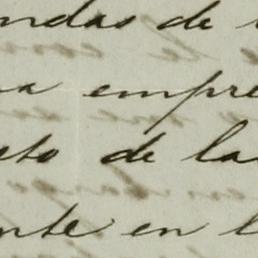 ndas de
a empre
eto de la
nte en l